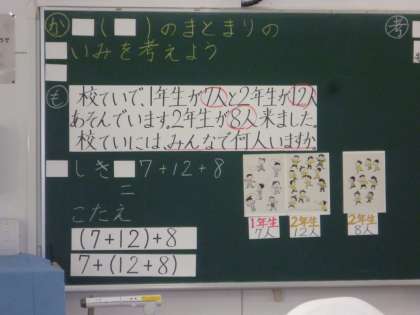 か ( )のまとまりの
いみを考えよう
も 校ていで、1年生が7人と2年生が12人
あそんでいます。2年生が8人来ました。
校ていには、みんなで何人いますか。
しき 7+12+8
=
こたえ
(7+12)+8
7+(12+8)
1年生
7人
2年生
12人
2年生
8人
考